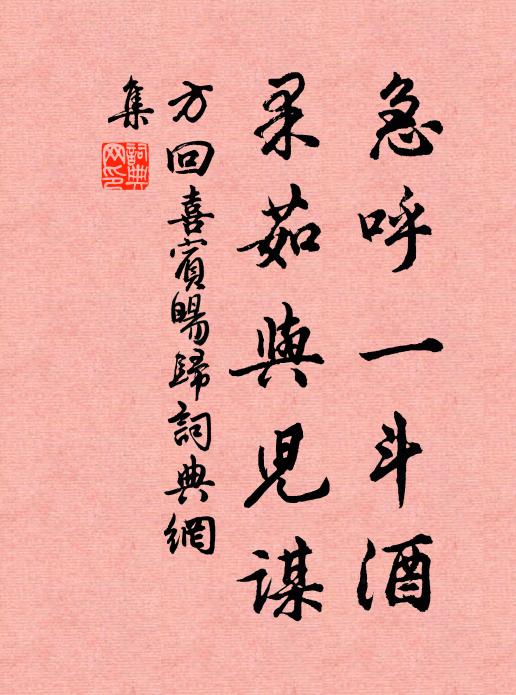 急呼一斗酒
果茹與兒謀
方回喜賓暘歸詞典網
集
詞典網印